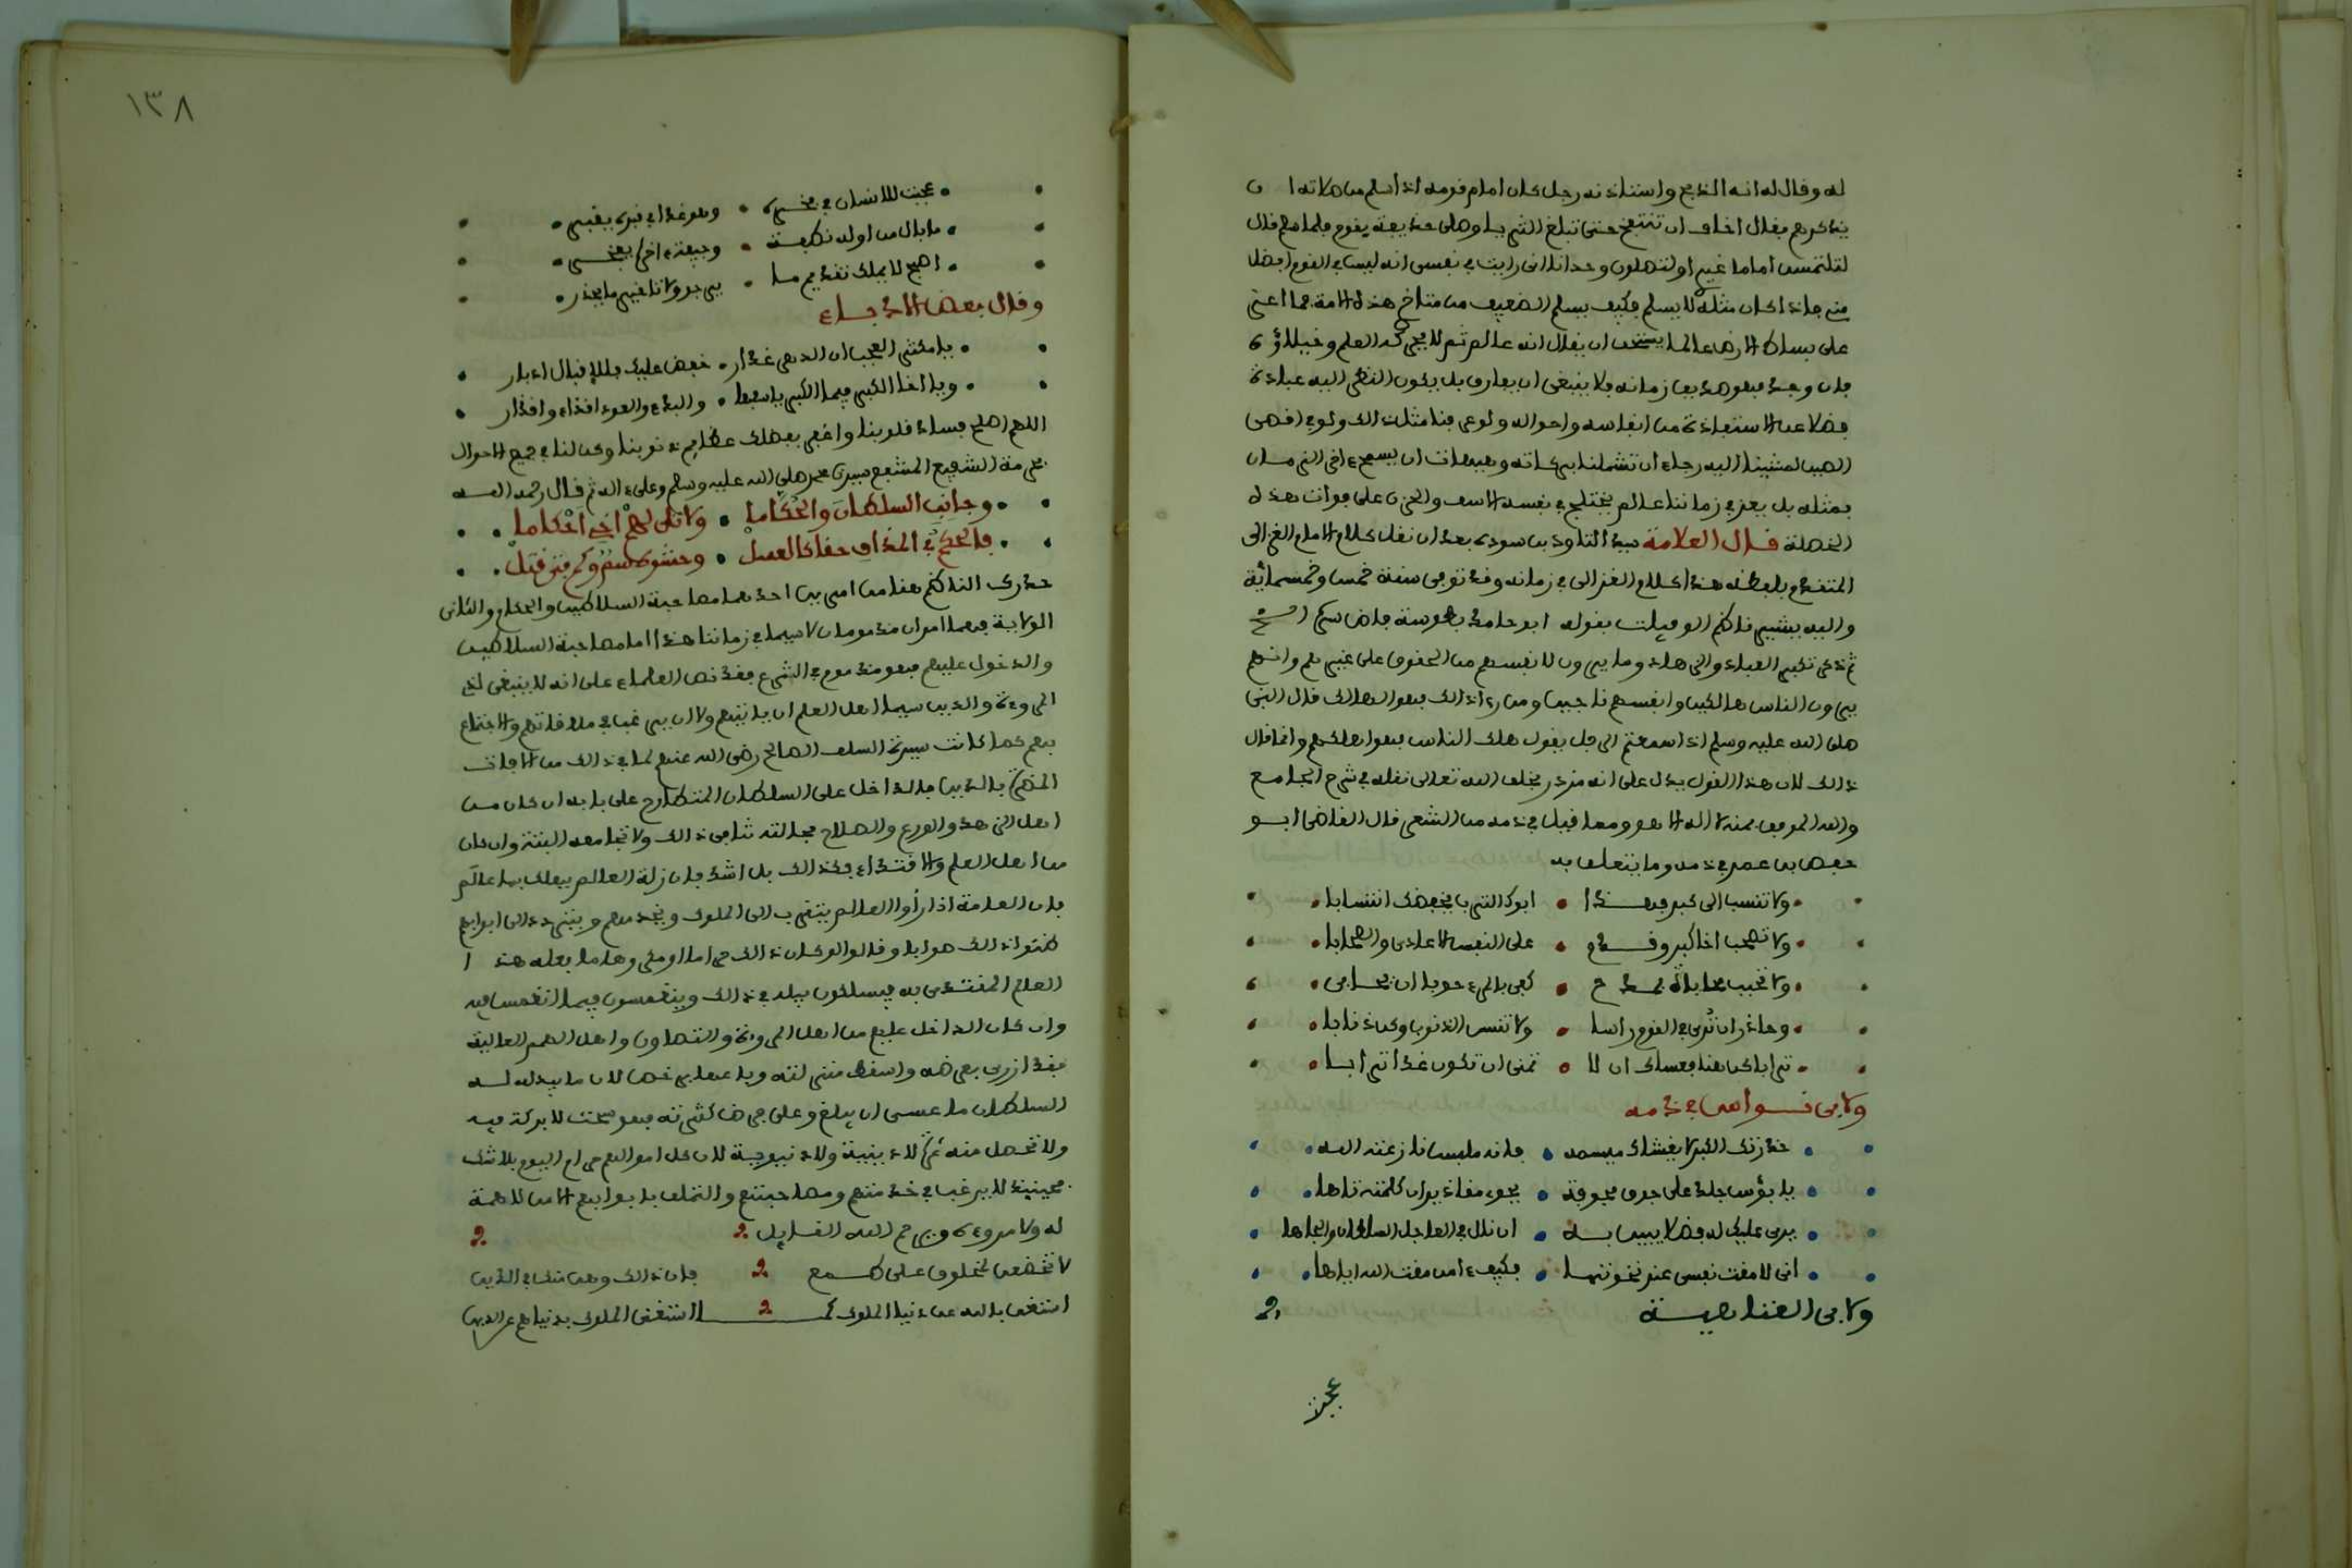 له وقال له انه الذبح واستاذنه رجل كان امام قومه اذا سلم من صلاته ان
يذكرهم فقال اخاف ان تنتفخ حتى تبلغ الثريا وصلى حذيفة بقوم فلما سلم قال
لتلتمسن اماما غيري او لتصلون وحدانا انى رايت في نفسى انه ليس في القوم افضل
منى فاذا كان مثله لا يسلم فكيف يسلم الضعيف من متاخر هذه الامة فما اعز
على بساط الارض عالما يستحق ان يقال انه عالم ثم لا يحركه العلم وخيلاؤه
فان وجد فهو صديق زمانه فلا ينبغى ان يفارق بل يكون النظر اليه عبادة
فضلا عن الاستفادة من انفاسه واحواله ولو عرفنا مثل ذالك ولو في اقصى
الصين لمشينا اليه رجاء ان تشملنا بركاته وهيهات ان يسمح ءاخر الزمان
بمثله بل يعز في زماننا عالم يختلج في نفسه الاسف والحزن على فوات هذه
الخصلة قال العلامة سيد التاود بن سوده بعد ان نقل كلام الامام الغزالى
المتقدم بلفظه هذا كلام الغزالى في زمانه وقد توفى سنة خمس وخمسمائة
واليه يشير ناظم الوفيات بقوله ابو حامد بطوسة فاض
ثم ذكر تكبر العباد والزهاد وما يرون لانفسهم من الحقوق على غيرهم وانهم
يرون الناس هالكين وانفسهم ناجين ومن رءا ذالك فهو الهالك قال النبي
صلى الله عليه وسلم اذا سمعتم الرجل يقول هلك الناس فهو اهلكهم وانما قال
ذالك لان هذا القول يدل على انه مزدر بخلق الله تعالى نقله في شرح الجامع
والله الموفق بمنه لا اله الا هو ومما قيل في ذمه من الشعر قال القاضى ابو
حفص بن عمر في ذمه وما يتعلق به
ولا تنسب الى كبر فهذا • ابوك الترب يخفضك انتسابا
ولا تصحب اخا كبر وقدم • على النفس الاعادى والصحابا
ولا تحبب محاباة بمدح • كفى بالمرء حوبا ان يحابى
وحاذر ان ترى في القوم راسا • ولا تنس الذنوب وكن ذنابا
ترابا كن هنا فعساك ان لا • تمنى ان تكون غدا ترابا
ولابى نواس في ذمه
حذرتك الكبر لا يغشاك ميسمه • فانه ملبس نازعته الله
يا بؤس جلد على جوف مجوفة • يحوى مقاذير ان كلمته تاها
يرى عليك له فضلا يبين به • ان نال في العاجل السلطان والجاها
انى لامقت نفسى عند نخوتها • فكيف ءامن مقت الله اياها
ولابى العتاهية
عجبت
١٣٨
عجبت للانسان في فخره • وهو غدا في قبره يقبر
ما بال من اوله نطفة • وجيفة ءاخره يفخر
اصبح لا يملك تقديم ما • يرجو ولا تاخير ما يحذر
وقال بعض الادباء
يا مكثر العجب ان الدهر غدار • خفض عليك فللاقبال ادبار
ويا اخا الكبر فيما الكبر يا سفها • والبدء والعود اقذاء واقذار
اللهم اصلح فساد قلوبنا واغفر بفضلك عظايم ذنوبنا وكن لنا في جميع الاحوال
بحرمة الشفيع المشفع سيدنا محمد صلى الله عليه وسلم وعلى ءاله ثم قال رحمه الله
وجانب السلطان والحكاما • ولا تلى لهم اخى احكاما
فالحكم في المذاق حقا كالعسل • وحشوه سم وكم فتى قتل
حذرك الناظم هنا من امرين احدهما مصاحبة السلاطين والحكام والثانى
الولاية فهما امران مذمومان لا سيما في زماننا هذا اما مصاحبة السلاطين
والدخول عليهم فهو مذموم في الشرع فقد نص العلماء على انه لا ينبغى لذى
المروءة والدين سيما اهل العلم ان ياتيهم ولا ان يرغب في ملاقاتهم والاجتماع
بهم كما كانت سيرة السلف الصالح رضى الله عنهم لما في ذالك من الافات
المضرة بالدين فالداخل على السلطان المتطارح على بابه ان كان من
اهل الزهد والورع والصلاح فحالته تنافى ذالك ولا تجامعه البتة وان كان
من اهل العلم والاقتداء فكذالك بل اشد فان زلة العالم يهلك بها عالم
فان العامة اذا راوا العالم يتقرب الى الملوك ويخدمهم ويتردد الى ابوابهم
ظنوا ذالك صوابا وقالوا لو كان ذالك حراما او مكروها ما يفعله هذا
العالم المقتدى به فيسلكون سبيله في ذالك وينغمسون فيما انغمس فيه
وان كان الداخل عليهم من اهل المروءة والتصاون واهل الهمم العالية
فقد ازرى بعرضه واسقط منزلته وباعها برخص لان ما يبذله له
السلطان ما عسى ان يبلغ وعلى فرض كثرته فهو سحت لا بركة فيه
ولا تحصل منه ثمرة لا دينية ولا دنيوية لان كل اموالهم حرام اليوم بلا شك
فحينئذ لا يرغب في خدمتهم ومصاحبتهم والتملق بابوابهم الا من لا همة
له ولا مروءة ويرحم الله القايل
لا تخضعن لمخلوق على طمع • فان ذالك وهن منك في الدين
استغن بالله عن دنيا الملوك كما استغنى الملوك بدنياهم عن الدين